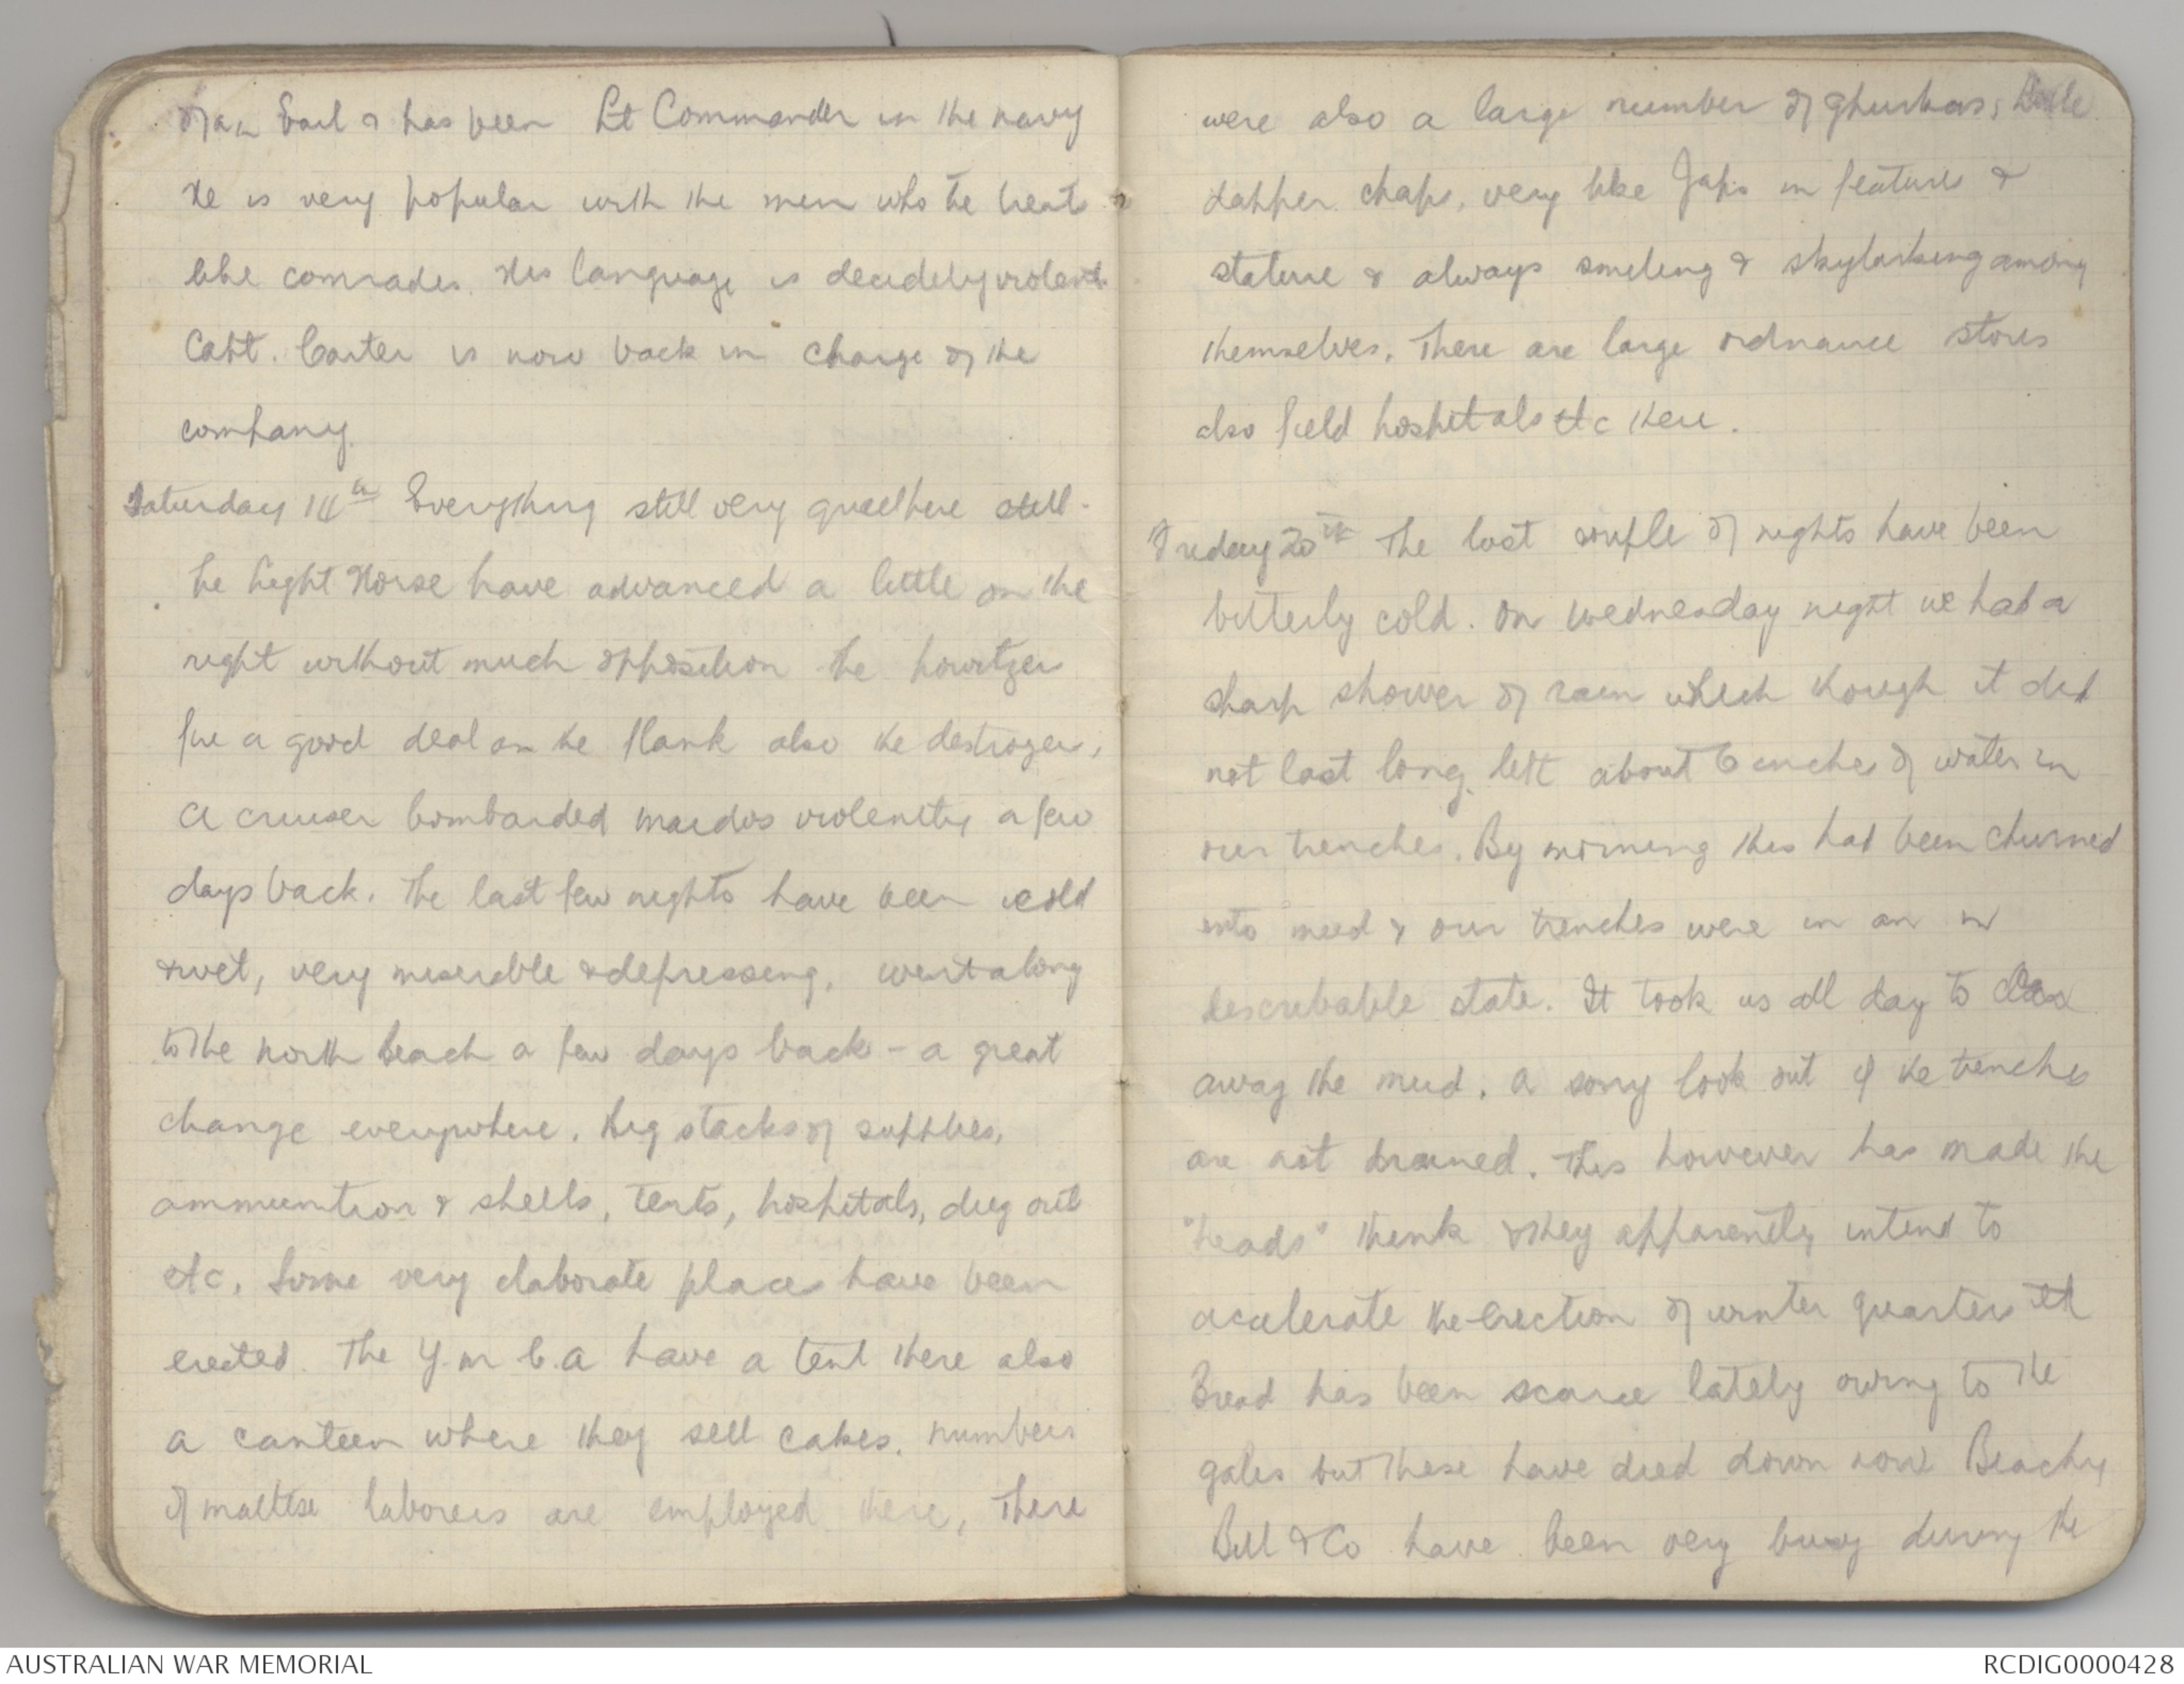 of an Earl & has been Lt Commander in the navy
He is very popular with the men who he treats
like comrades. His language is decidely violent.
Capt. Carter is now back in charge of the
company.
Saturday 14th Everything still very quiet here still.
The Light Horse have advanced a little on the
right without much opposition The howitzers
fire a good deal on the flank also the destroyer,
A cruiser bombarded Maidos violently a few
days back. The last few nights have been cold
& wet, very miserable & depressing, went along
to the north beach a few days back - a great
change everywhere. Big stacks of supplies,
ammunition & shells, tents, hospitals, dug out
etc. Some very elaborate places have been
erected. The Y.M.C.A have a tent there also
a canteen where they sell cakes. Numbers
of maltese laborers are employed here, There
were also a large number of Ghurkas, little
dapper chaps, very like Japs in feature &
stature & always smiling & skylarking among
themselves. There are large ordnance stores
also field hospitals etc there.
Friday 20th The last couple of nights have been
bitterly cold. On Wednesday night we had a
sharp shower of rain which though it did
not last long left about 6 inches of water in
our trenches. By morning this had been churned
into mud & our trenches were in an in
describable state. It took us all day to clear
away the mud. A sorry look out if the trenches
are not drained. This however has made the
"heads" think & they apparently intend to
acelerate the erection of winter quarters etc
Bread has been scarce lately owing to the
gales but these have died down now Beachy
Bill & Co have been very busy during the
AUSTRALIAN WAR MEMORIAL
RCDIG0000428